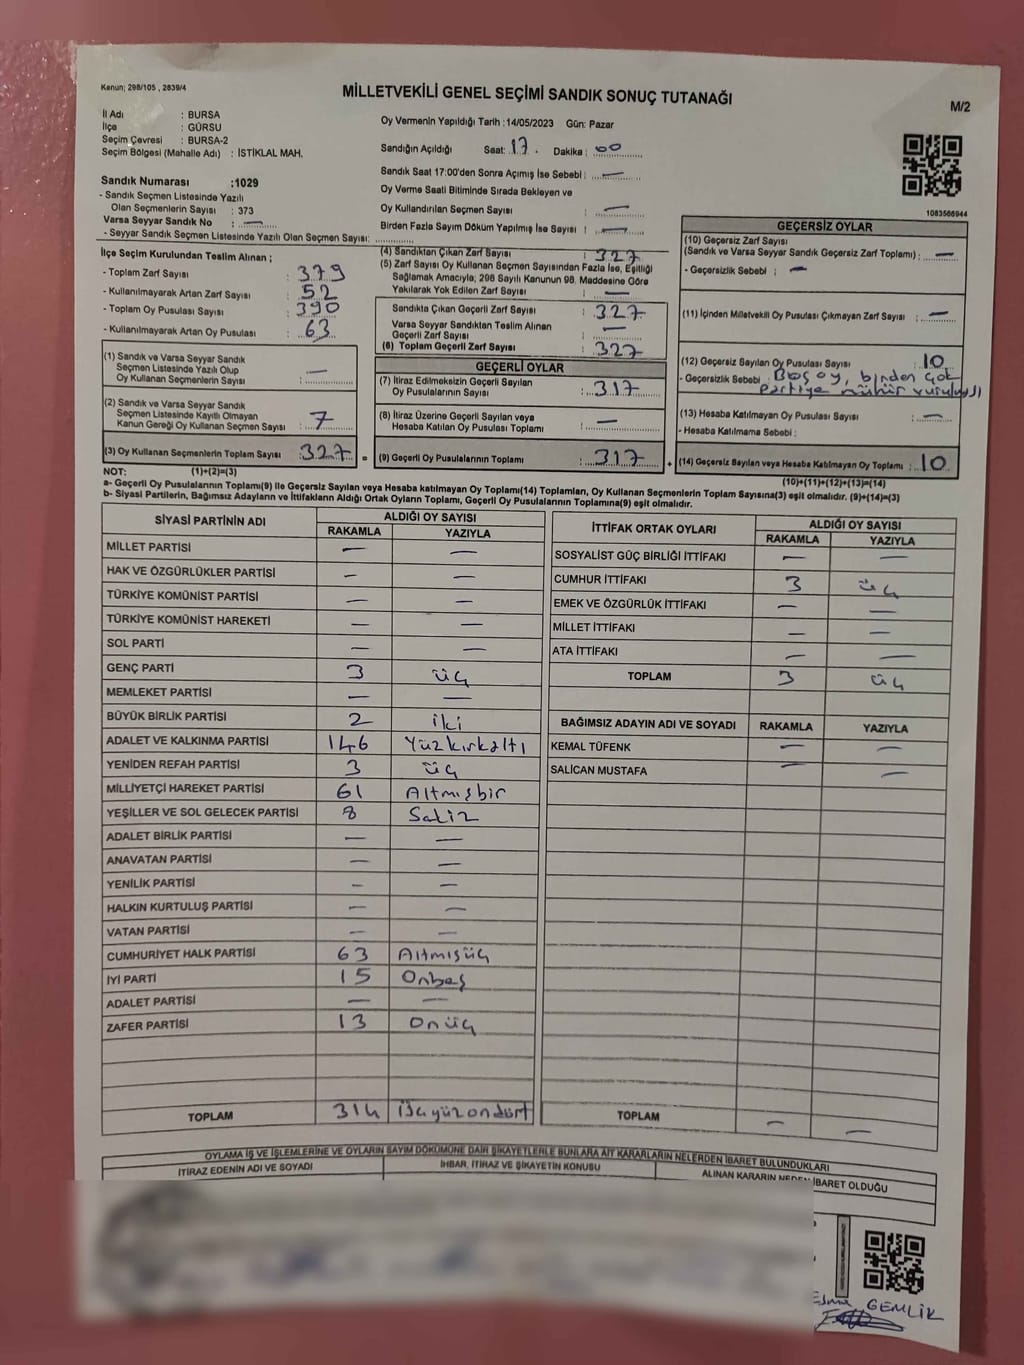 Kanun; 298/105 , 2839/4
MİLLETVEKİLİ GENEL SEÇİMİ SANDIK SONUÇ TUTANAĞI
M/2
İl Adı : BURSA
İlçe : GÜRSU
Seçim Çevresi : BURSA-2
Seçim Bölgesi (Mahalle Adı) : İSTİKLAL MAH.
Sandık Numarası :1029
- Sandık Seçmen Listesinde Yazılı
Olan Seçmenlerin Sayısı : 373
Varsa Seyyar Sandık No : —
- Seyyar Sandık Seçmen Listesinde Yazılı Olan Seçmen Sayısı:
Oy Vermenin Yapıldığı Tarih :14/05/2023 Gün: Pazar
Sandığın Açıldığı Saat: 17 . Dakika : 00
Sandık Saat 17:00'den Sonra Açımış İse Sebebi : —
Oy Verme Saati Bitiminde Sırada Bekleyen ve
Oy Kullandırılan Seçmen Sayısı : —
Birden Fazla Sayım Döküm Yapılmış İse Sayısı : —
1083566944
İlçe Seçim Kurulundan Teslim Alınan ;
- Toplam Zarf Sayısı : 379
- Kullanılmayarak Artan Zarf Sayısı : 52
- Toplam Oy Pusulası Sayısı : 390
- Kullanılmayarak Artan Oy Pusulası : 63
(1) Sandık ve Varsa Seyyar Sandık
Seçmen Listesinde Yazılı Olup
Oy Kullanan Seçmenlerin Sayısı : —
(2) Sandık ve Varsa Seyyar Sandık
Seçmen Listesinde Kayıtlı Olmayan
Kanun Gereği Oy Kullanan Seçmen Sayısı : 7
(3) Oy Kullanan Seçmenlerin Toplam Sayısı : 327 =
(4) Sandıktan Çıkan Zarf Sayısı : 327
(5) Zarf Sayısı Oy Kullanan Seçmen Sayısından Fazla İse, Eşitliği
Sağlamak Amacıyla; 298 Sayılı Kanunun 98. Maddesine Göre
Yakılarak Yok Edilen Zarf Sayısı : —
Sandıkta Çıkan Geçerli Zarf Sayısı : 327
Varsa Seyyar Sandıktan Teslim Alınan
Geçerli Zarf Sayısı : —
(6) Toplam Geçerli Zarf Sayısı : 327
GEÇERLİ OYLAR
(7) İtiraz Edilmeksizin Geçerli Sayılan
Oy Pusulalarının Sayısı : 317
(8) İtiraz Üzerine Geçerli Sayılan veya
Hesaba Katılan Oy Pusulası Toplamı : —
(9) Geçerli Oy Pusulalarının Toplamı : 317 +
GEÇERSİZ OYLAR
(10) Geçersiz Zarf Sayısı
(Sandık ve Varsa Seyyar Sandık Geçersiz Zarf Toplamı) : —
- Geçersizlik Sebebi : —
(11) İçinden Milletvekili Oy Pusulası Çıkmayan Zarf Sayısı : —
(12) Geçersiz Sayılan Oy Pusulası Sayısı : 10
- Geçersizlik Sebebi : Boş oy, birden çok
partiye mühür vuruluydı
(13) Hesaba Katılmayan Oy Pusulası Sayısı : —
- Hesaba Katılmama Sebebi :
(14) Geçersiz Sayılan veya Hesaba Katılmayan Oy Toplamı : 10
NOT: (1)+(2)=(3)
(10)+(11)+(12)+(13)=(14)
a- Geçerli Oy Pusulalarının Toplamı(9) ile Geçersiz Sayılan veya Hesaba katılmayan Oy Toplamı(14) Toplamları, Oy Kullanan Seçmenlerin Toplam Sayısına(3) eşit olmalıdır. (9)+(14)=(3)
b- Siyasi Partilerin, Bağımsız Adayların ve İttifakların Aldığı Ortak Oyların Toplamı, Geçerli Oy Pusulalarının Toplamına(9) eşit olmalıdır.
SİYASİ PARTİNİN ADI ALDIĞI OY SAYISI
RAKAMLA YAZIYLA
MİLLET PARTİSİ — —
HAK VE ÖZGÜRLÜKLER PARTİSİ — —
TÜRKİYE KOMÜNİST PARTİSİ — —
TÜRKİYE KOMÜNİST HAREKETİ — —
SOL PARTİ — —
GENÇ PARTİ 3 üç
MEMLEKET PARTİSİ — —
BÜYÜK BİRLİK PARTİSİ 2 iki
ADALET VE KALKINMA PARTİSİ 146 Yüzkırkaltı
YENİDEN REFAH PARTİSİ 3 üç
MİLLİYETÇİ HAREKET PARTİSİ 61 Altmışbir
YEŞİLLER VE SOL GELECEK PARTİSİ 8 Sekiz
ADALET BİRLİK PARTİSİ — —
ANAVATAN PARTİSİ — —
YENİLİK PARTİSİ — —
HALKIN KURTULUŞ PARTİSİ — —
VATAN PARTİSİ — —
CUMHURİYET HALK PARTİSİ 63 Altmışüç
İYİ PARTİ 15 Onbeş
ADALET PARTİSİ — —
ZAFER PARTİSİ 13 Onüç
TOPLAM 314 Üçyüzondört
İTTİFAK ORTAK OYLARI ALDIĞI OY SAYISI
RAKAMLA YAZIYLA
SOSYALİST GÜÇ BİRLİĞİ İTTİFAKI — —
CUMHUR İTTİFAKI 3 üç
EMEK VE ÖZGÜRLÜK İTTİFAKI — —
MİLLET İTTİFAKI — —
ATA İTTİFAKI — —
TOPLAM 3 üç
BAĞIMSIZ ADAYIN ADI VE SOYADI RAKAMLA YAZIYLA
KEMAL TÜFENK — —
SALİCAN MUSTAFA — —
TOPLAM — —
OYLAMA İŞ VE İŞLEMLERİNE VE OYLARIN SAYIM DÖKÜMÜNE DAİR ŞİKAYETLERLE BUNLARA AİT KARARLARIN NELERDEN İBARET BULUNDUKLARI
İTİRAZ EDENİN ADI VE SOYADI İHBAR, İTİRAZ VE ŞİKAYETİN KONUSU ALINAN KARARIN NEDEN İBARET OLDUĞU
GEMLİK